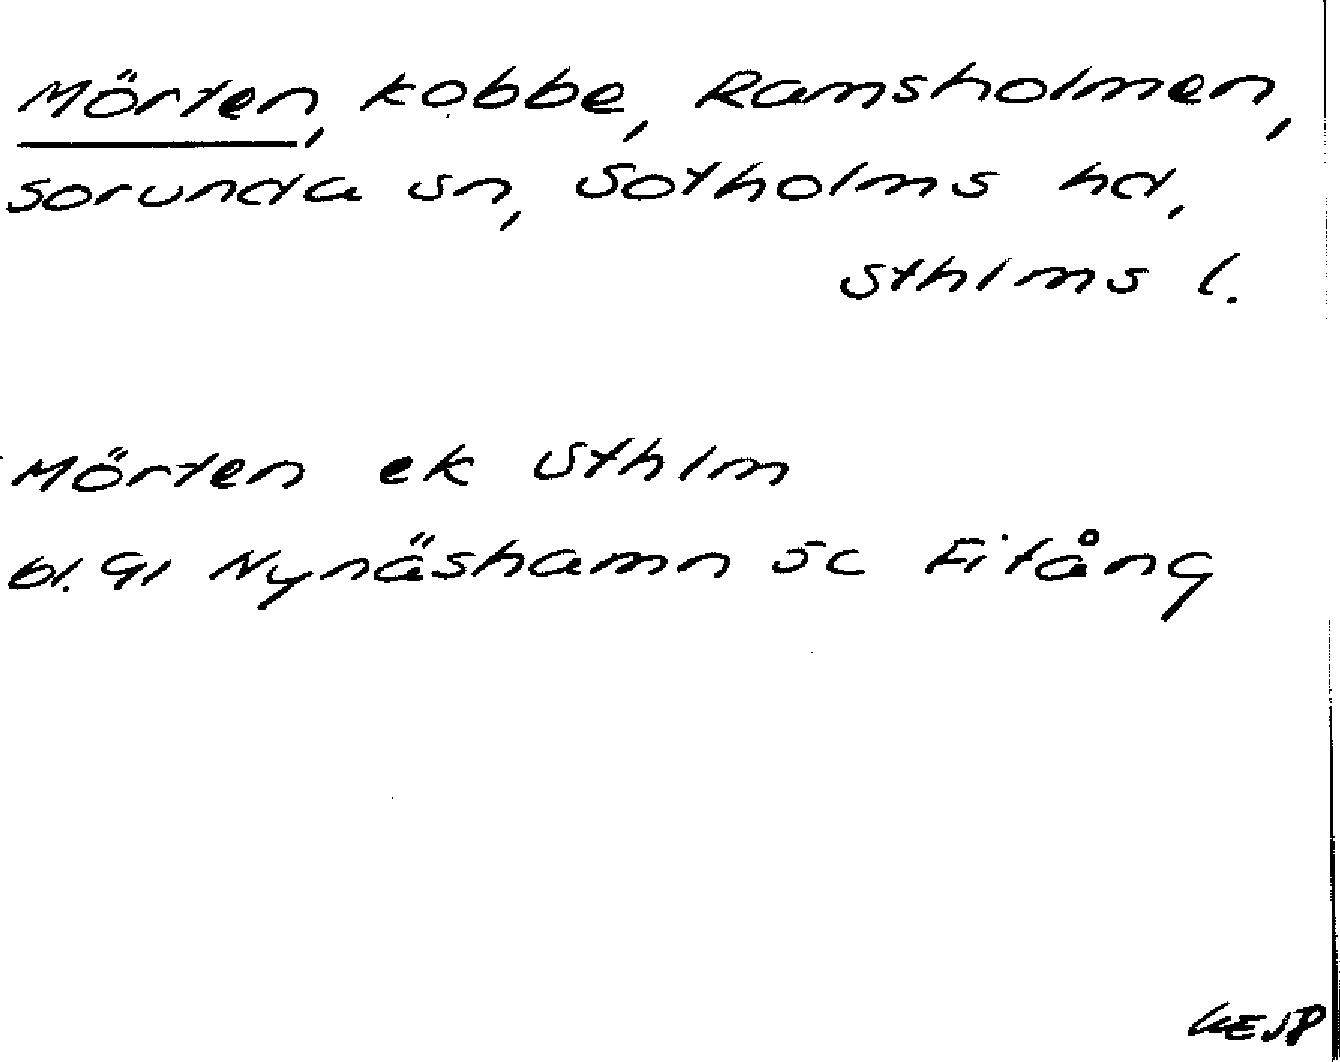 Mörten, kobbe, Ramsholmen,
Sorunda sn, Sotholms hd,
Sthlms l.
Mörten ek Sthlm
bl. 91 Nynäshamn 5c Fifång